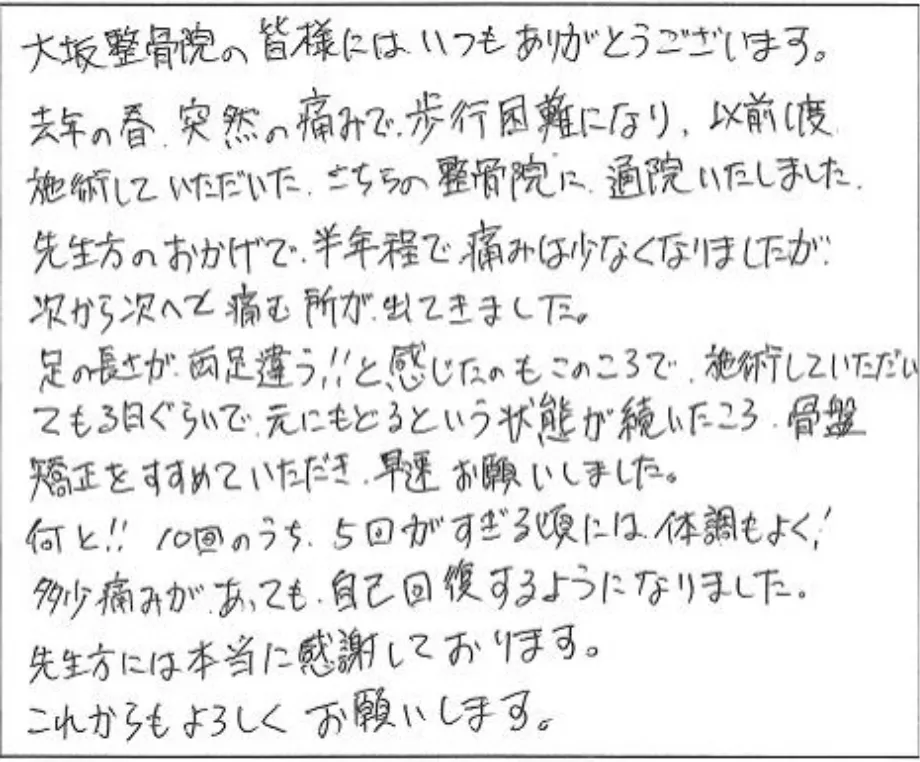 大坂整骨院の皆様にはいつもありがとうございます。
去年の春、突然の痛みで、歩行困難になり、以前1度
施術していただいた、こちらの整骨院に、通院いたしました。
先生方のおかげで、半年程で、痛みは少なくなりましたが、
次から次へと痛む所が、出てきました。
足の長さが、両足違う!!と感じたのもこのころで、施術していただい
ても3日ぐらいで、元にもどるという状態が続いたころ、骨盤
矯正をすすめていただき、早速お願いしました。
何と!! 10回のうち、5回がすぎる頃には、体調もよく!
多少痛みが、あっても、自己回復するようになりました。
先生方には本当に感謝しております。
これからもよろしくお願いします。